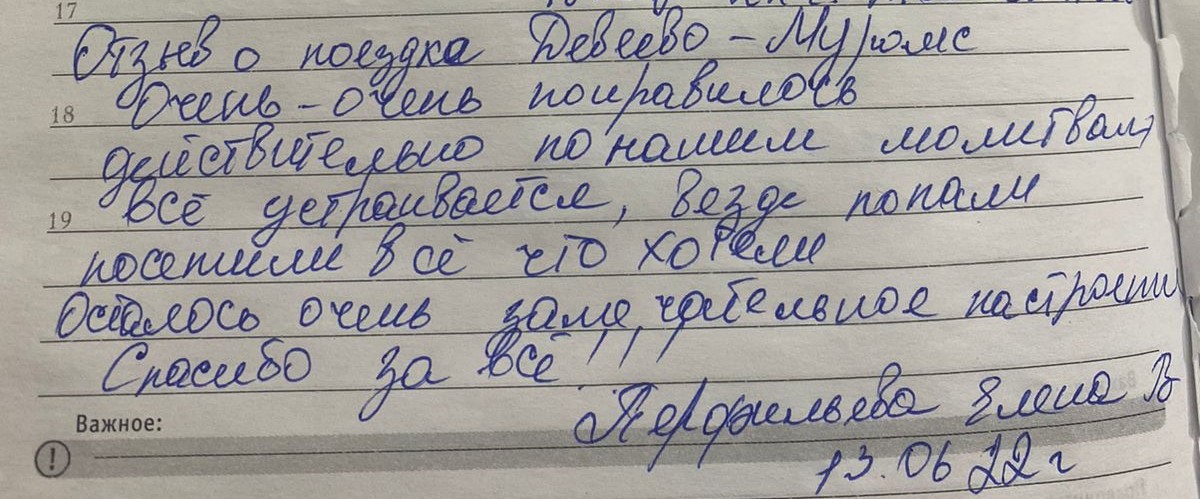 17
Отзыв о поездка Девеево - Муромс
18 Очень - очень понравилось
действительно по нашим молитвам
19 всё устраивается, везде попали
посетили всё что хотели
Осталось очень заме,чательное настроени
Спасибо за всё!!!
Важное:
Перфильева Елена В
! 13.06 22 г